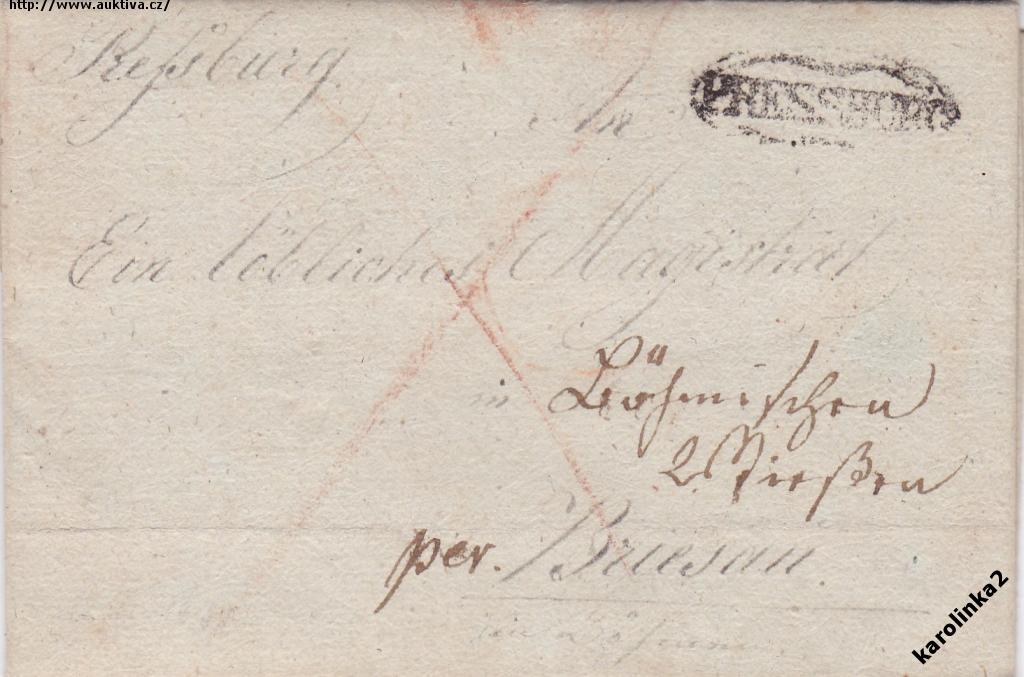 http://www.auktiva.cz/
Preßburg
PRESSBURG
An
Ein löblicher Magistrat
in Böhmischen
Wießen
per. Briesau
in Böhmen.
karolinka2